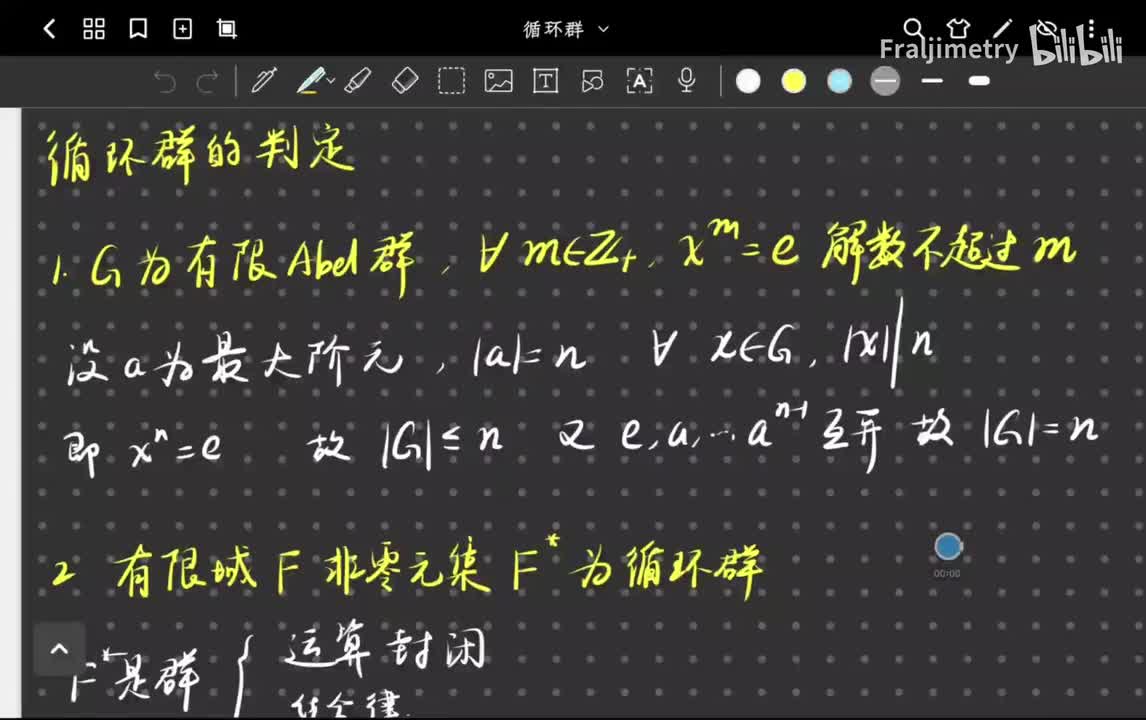 循环群
Fraljimetry bilibili
循环群的判定
1. G为有限Abel群, ∀ m∈Z₊, x^m = e 解数不超过 m
设 a 为最大阶元, |a|=n ∀ x∈G, |x| | n
即 x^n = e 故 |G| ≤ n 又 e, a, … a^{n-1} 互异 故 |G| = n
2 有限域 F 非零元集 F* 为循环群
00:00
F*是群 { 运算封闭
结合律